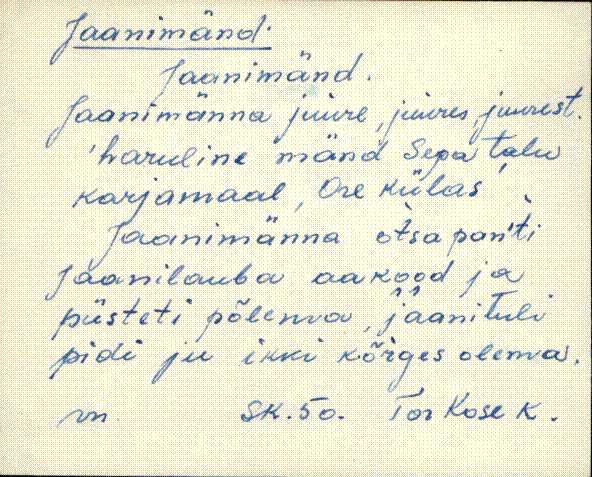 Jaanimänd.
Jaanimänd.
Jaanimänna juure, juures, juurest.
'haruline mänd Sepa talu
karjamaal, Ore külas
Jaanimänna otsa pan'ti
Jaanilauba aakood ja
püsteti põlema, jâânituli
pidi ju ikki kõrges olema.
vn. SK. 50. Tor Kose k.